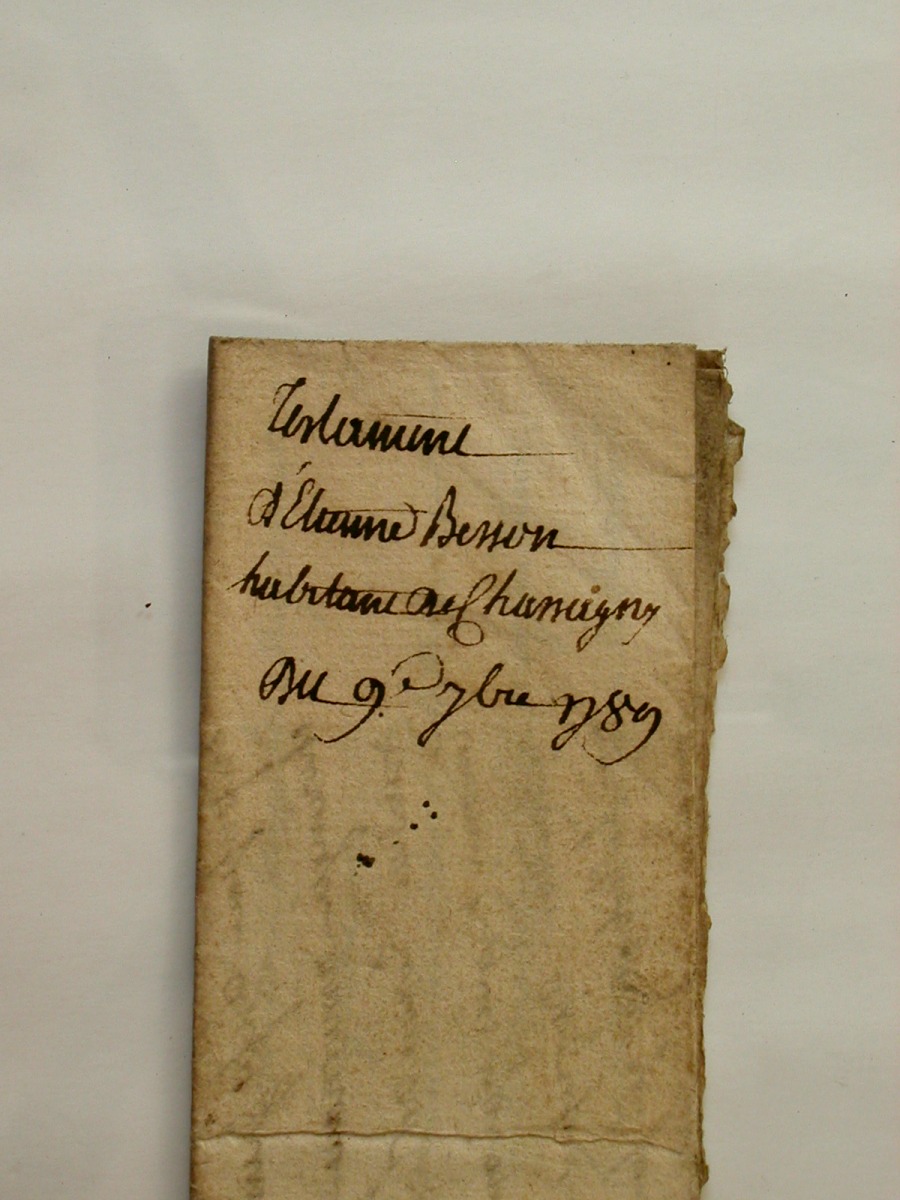 Testament
d'Étienne Besson
habitant de Chassigny
Du 9.e 7bre 1789